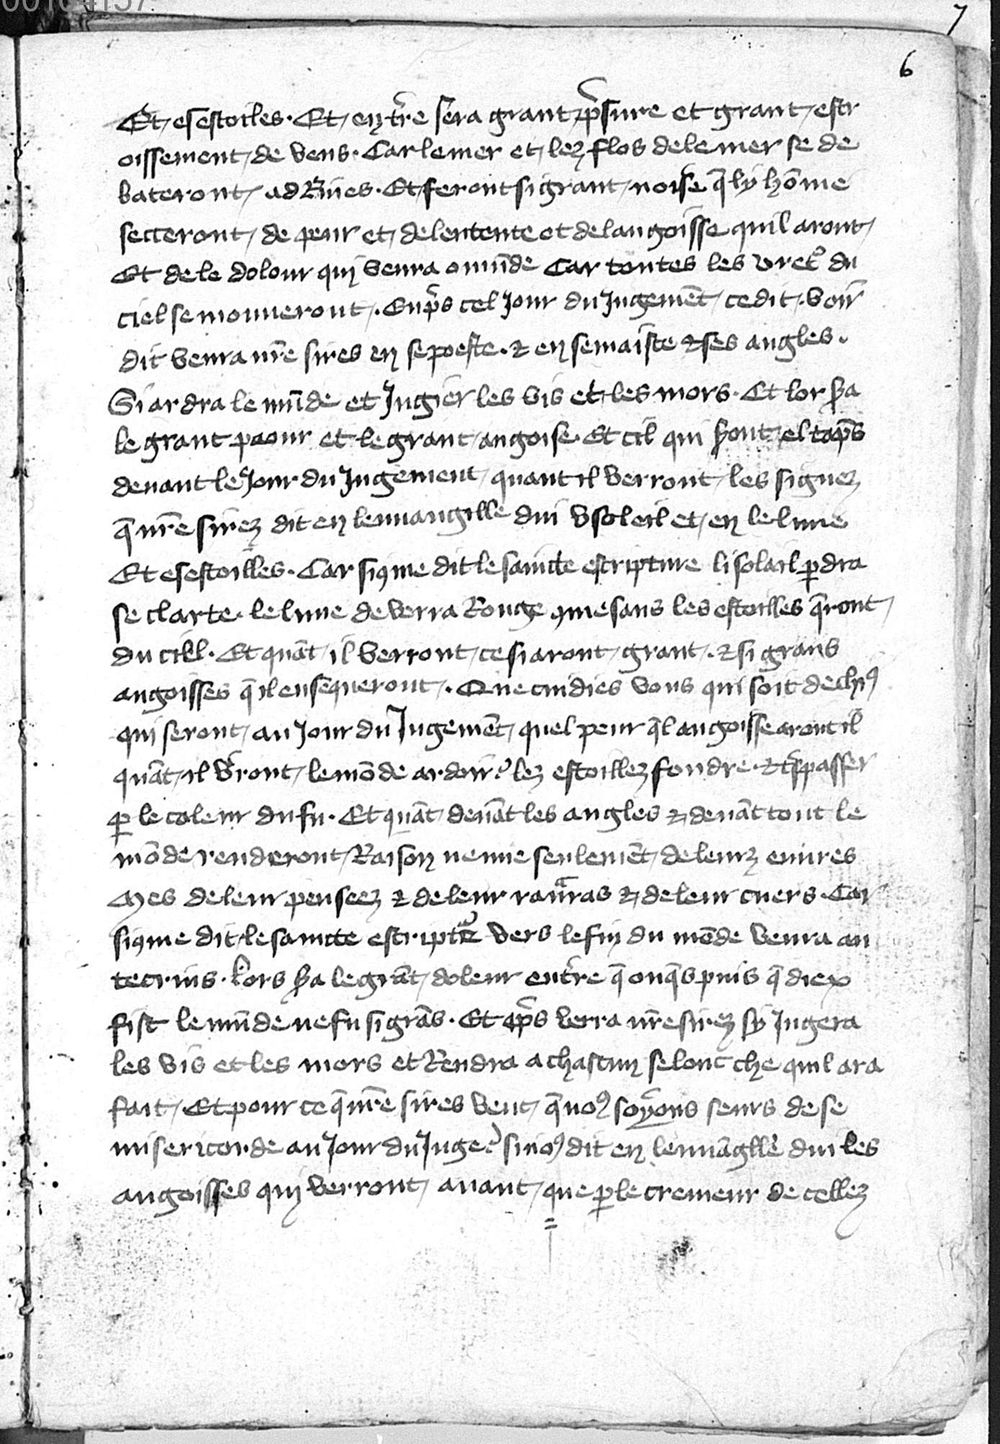 7
6
Et esestoiles. Et en tr̃e sera grant p̃sure et grant estr
oissement de vens. Car le mer et lez flos de le mer se de
bateront ad Riues. Et feront si grant noise q̃ ly hõme
secteront de peur et de lentente et de langoisse quil aront
Et de le dolour qui venra o mũde Car toutes les du
ciel se mouueront. cel Jour du Jugemẽt ce dit voir
dit venra nr̃e sires en se poeste. & en se maiste & ses angles.
Si ardra le mũde et Jugier les vis et les mors. Et lor s̃a
le grant paour et le grant angoise. Et cil qui s̃ont el tãps
deuant le Jour du Jugement quant il verront les signez
q̃ nr̃e sirez dit en leuuangille dui soleil et en le lune
Et esestoilles. Car si 9me dit le saincte escripture li solail p̱dra
se clarte. le lune deverra Rouge 9me sanc les estoilles q̃ront
du cikl. Et quãt il verront ce si aront grant. & si grans
angoisses q̃ il ensequeront. Que cuidies vous qui soit de chi9
qui seront au Jour du Jugemẽt quel peur q̃l angoisse aront il
quãt il v̾ront le mõde ardoir lez estoillez fondre. & tr̃spasser
p̱ le coleur du fu. Et quãt deuãt les angles & deuãt tout le
mõde renderont Raison ne mie seulemẽt de leurz euures
Mes de leur penseez & de leur & de leur cuers. Car
si 9me dit le saincte escriptur̃e vers le fin du mõde venra an
tecrius. Lors s̃a le grãt doleur en tr̃e q̃ onq̃s puis q̃ diex
fist le mũde ne fu si grãs. Et ap̃s verra nr̃e sirez sy Jugera
les vis et les mors et Rendra a chascun selonc che quil ara
fait. Et pour ce q̃ nr̃e sires veut q̃ no9 soyõns seurs de se
misericorde au Jour du Juge si no9 dit en leuuãglle dui les
angoisses qui verront auant que p̱ le cremeur de cellez